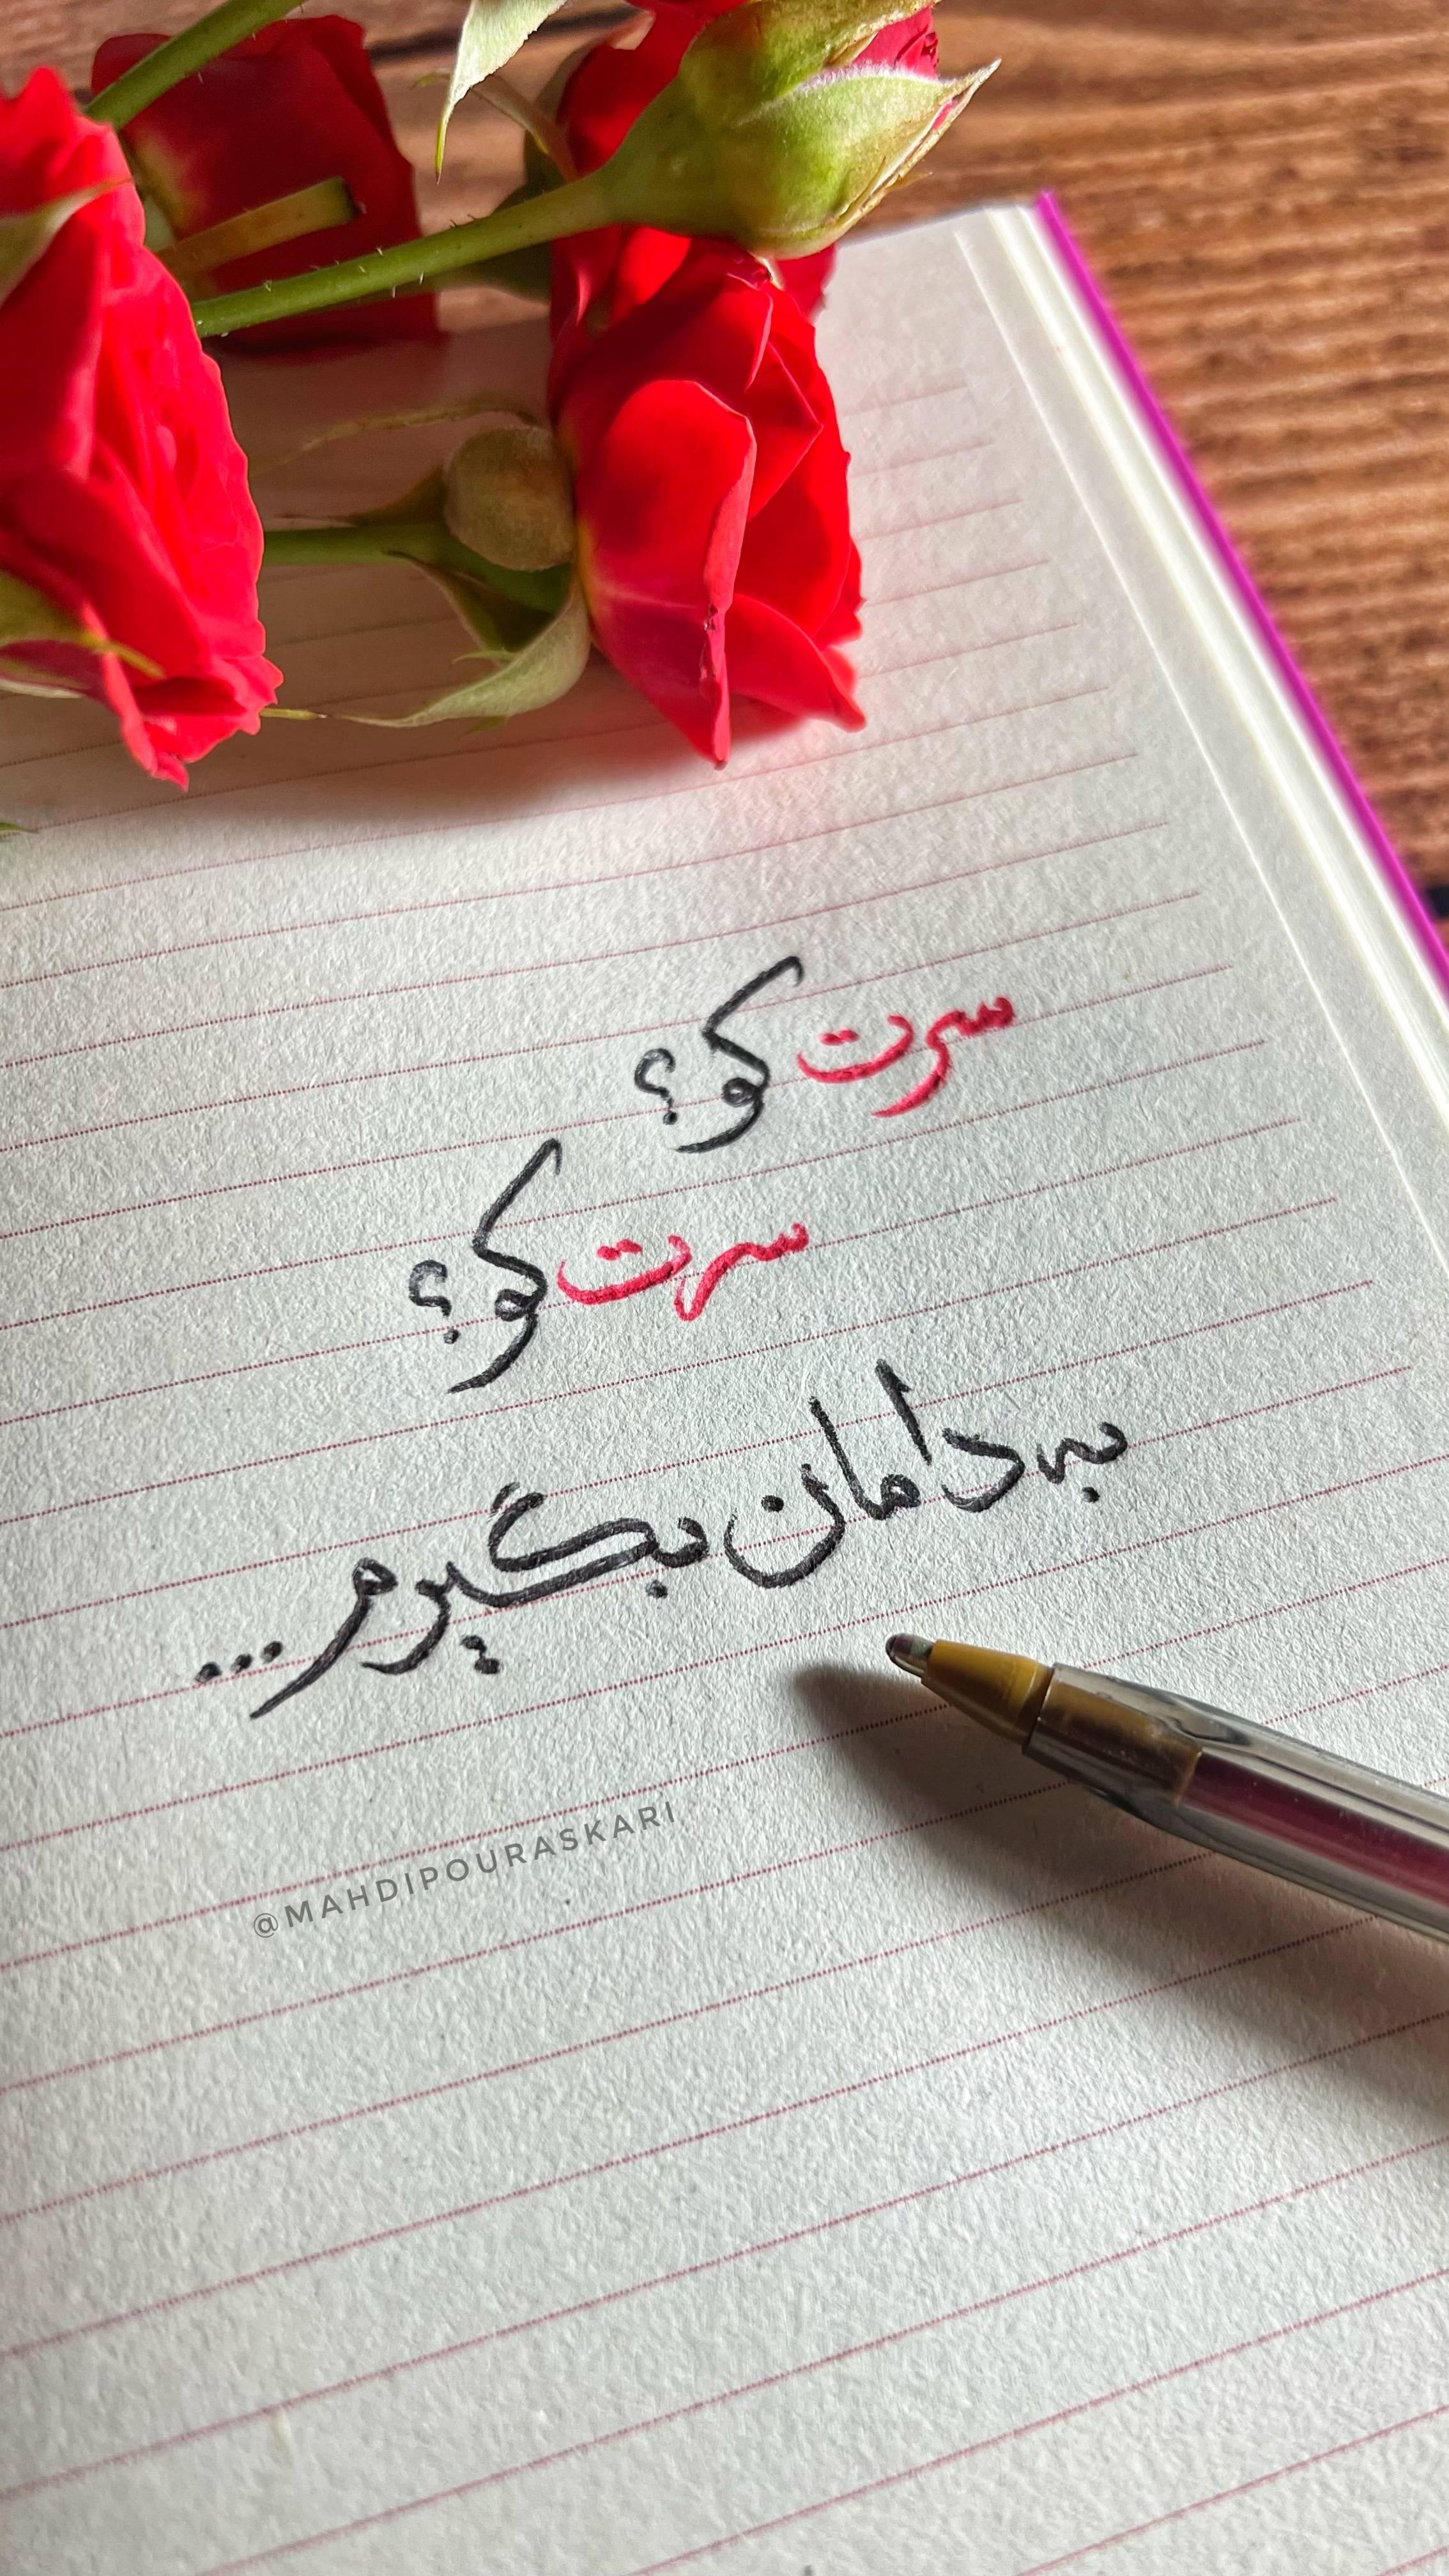 سرت کو؟
سرت کو؟
به دامان بگیرم...
@MAHDIPOURASKARI